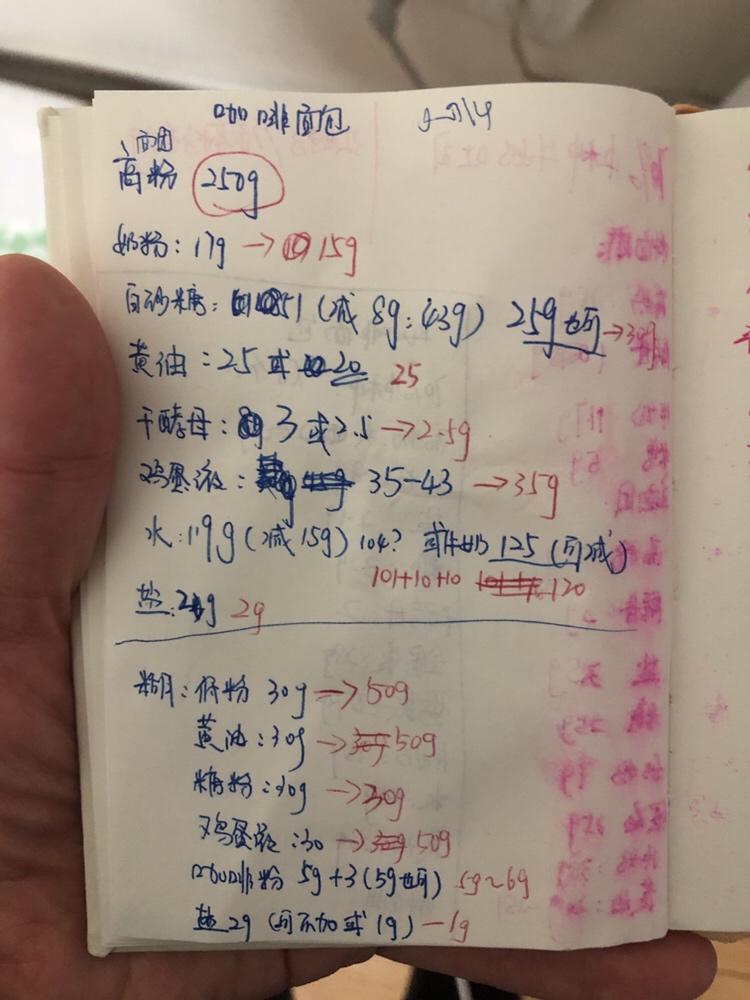 咖啡面包
面团
高粉 250g
奶粉：17g → 15g
白砂糖：51 (减 8g：43g) 25g也可 → 30g
黄油：25 或 20 25
干酵母：3 或 2.5 → 2.5g
鸡蛋液：35-43 → 35g
水：119g (减 15g) 104? 或牛奶 125 (可减)
101+10+10 120
盐：2g 2g
糊：低粉 30g → 50g
黄油：30g → 50g
糖粉：30g → 30g
鸡蛋液：30 → 50g
咖啡粉 5g+3 (5g也可) 5g~6g
盐 2g (可不加或 1g) — 1g